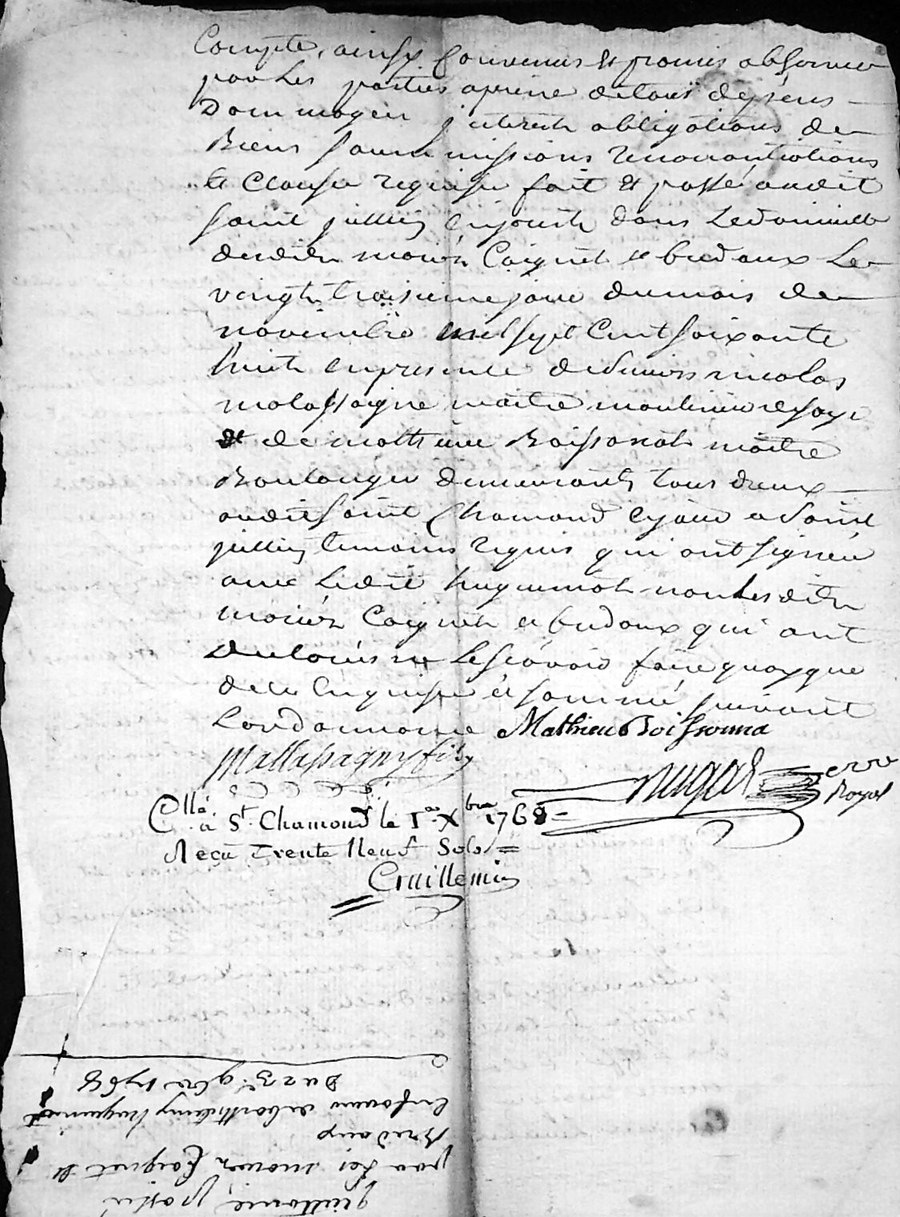 Compte, ainsy Convenus et promis observer
par les parties apeine de tous dépens
Dommages jnterests obligations de
Biens soummissions renonciations
et Clauses requises fait et passé audit
saint jullien en jarest dans le domicille
desdits morier Coignet et bredoux Le
vingt troisieme jour du mois de
novembre mil sept Cent soixante
huit en presence de sieurs nicolas
malassagne maitre moulinier de soye
et de mathieu Boissonat maitre
Boulanger demeurants tous deux
audit saint Chamond Cejour a saint
jullien temoins requis qui ont signés
avec Ledit huguenot non Lesdits
morier Coignet et bredoux qui ont
declarés ne Le sçavoir faire quoyque
de ce Enquis et sommés suivant
Lordonnance Mathieu Boissonna
Mallassagny fils
nore
Royal
Collé à St. Chamond le 1er Xbre 1768
Reçu Trente Neuf Sols
Guillemin
quittance, passée
par les morier Coignet et
Bredoux
En faveur de barthelemy huguenot
Du 23e 9bre 1768